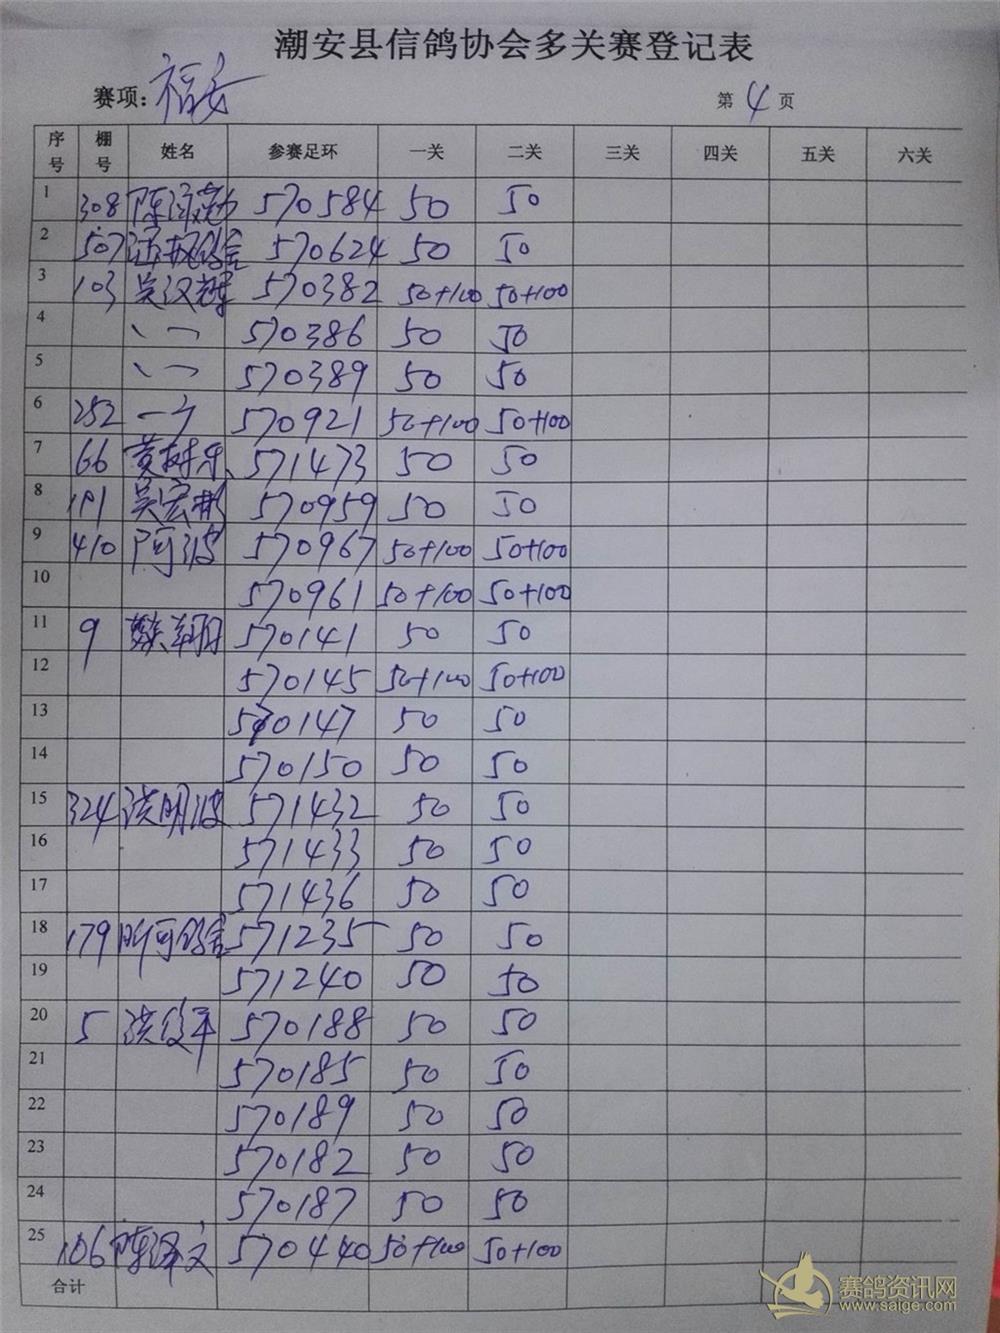 潮安县信鸽协会多关赛登记表
赛项：福安 第4页
序号 棚号 姓名 参赛足环 一关 二关 三关 四关 五关 六关
1 308 陈 570584 50 50
2 507 570624 50 50
3 103 吴汉辉 570382 50+100 50+100
4 、一 570386 50 50
5 、一 570389 50 50
6 252 570921 50+100 50+100
7 66 黄树乐 571473 50 50
8 191 吴宏彬 570959 50 50
9 410 阿波 570967 50+100 50+100
10 570961 50+100 50+100
11 9 570141 50 50
12 570145 50+100 50+100
13 570147 50 50
14 570150 50 50
15 324 洪明波 571432 50 50
16 571433 50 50
17 571436 50 50
18 179 571235 50 50
19 571240 50 50
20 5 洪俊平 570188 50 50
21 570185 50 50
22 570189 50 50
23 570182 50 50
24 570187 50 50
25 106 陈泽文 570440 50+100 50+100
合计
赛鸽资讯网
www.saige.com